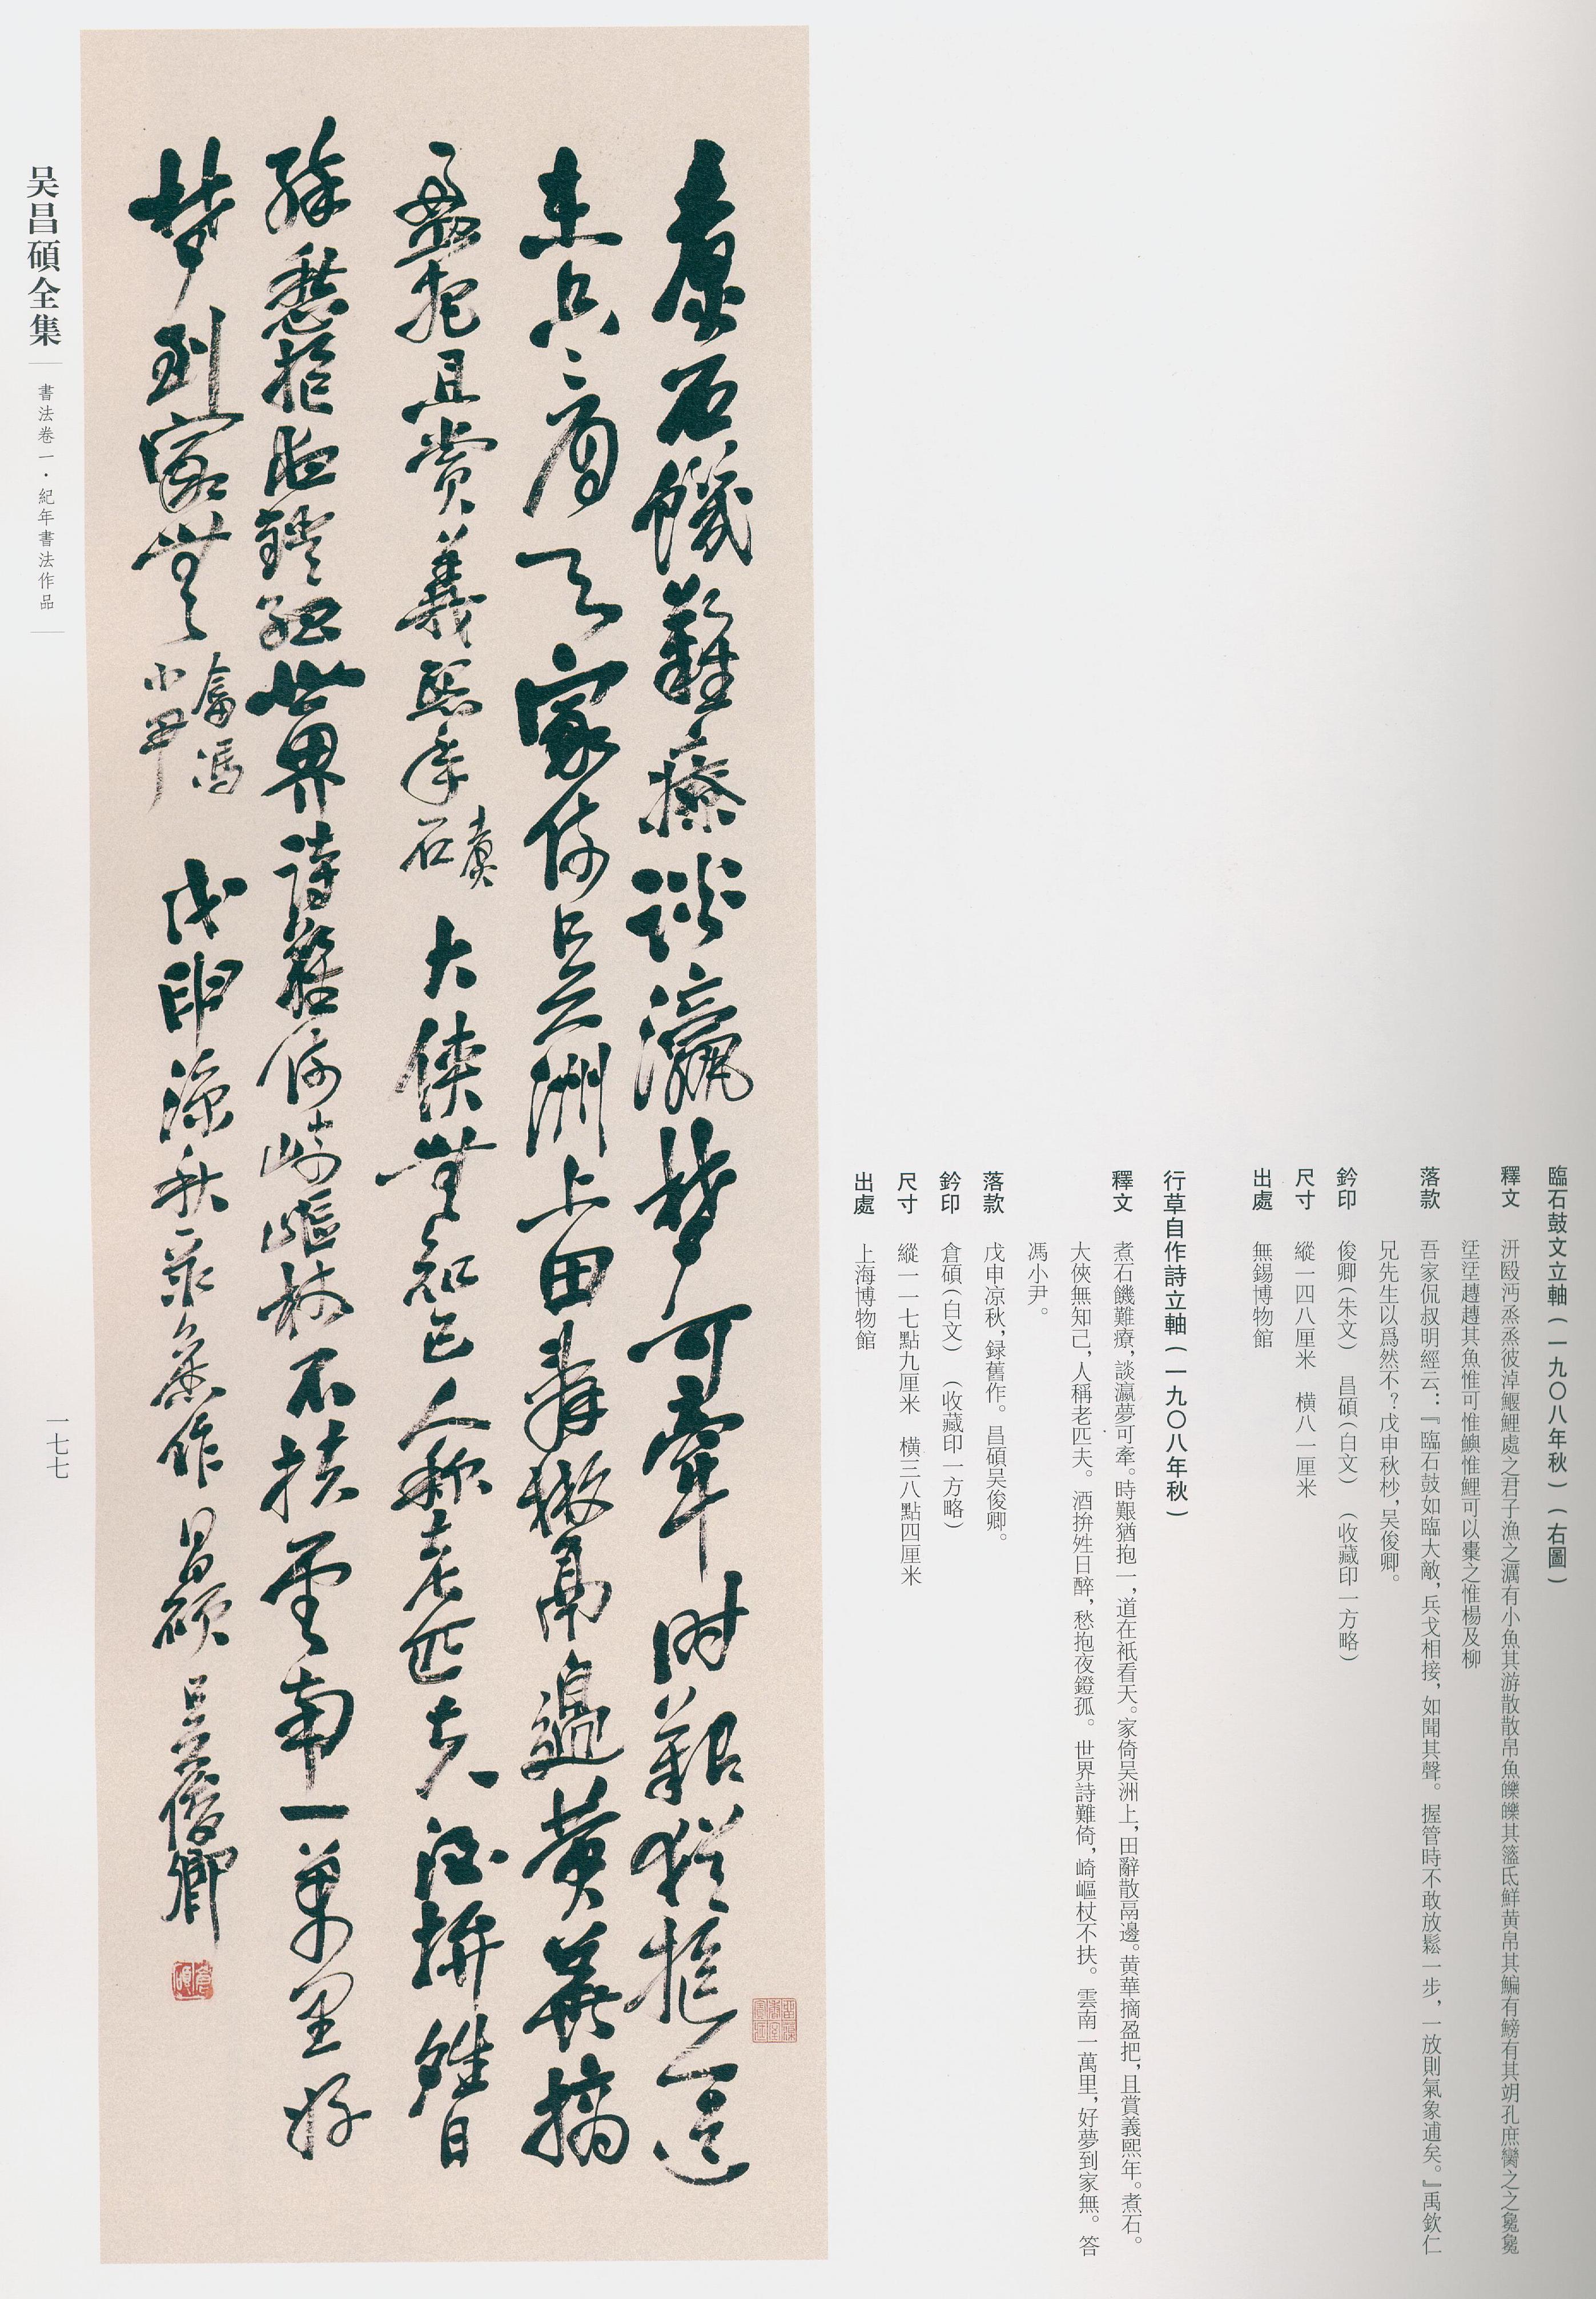 臨石鼓文立軸(一九〇八年秋)(右圖)
釋文 汧殹沔烝烝彼淖鰋鯉處之君子漁之澫有小魚其游散散帛魚皪皪其簉氐鮮黄帛其鯿有鰟有其𩵥孔庶臠之之㲋㲋
㳶㳶趞趞其魚惟可惟鱮惟鯉可以橐之惟楊及柳
落款 吾家侃叔明經云:『臨石鼓如臨大敵,兵戈相接,如聞其聲。握管時不敢放鬆一步,一放則氣象逋矣。』禹欽仁
兄先生以爲然不?戊申秋杪,吴俊卿。
鈐印 俊卿(朱文) 昌碩(白文) (收藏印一方略)
尺寸 縱一四八厘米 横八一厘米
出處 無錫博物館
行草自作詩立軸(一九〇八年秋)
釋文 煮石饑難療,談瀛夢可牽。時艱猶抱一,道在衹看天。家倚吴洲上,田辭散鬲邊。黄華摘盈把,且賞義熙年。煮石。
大俠無知己,人稱老匹夫。酒拚甡日醉,愁抱夜鐙孤。世界詩難倚,崎嶇杖不扶。雲南一萬里,好夢到家無。答
馮小尹。
落款 戊申凉秋,録舊作。昌碩吴俊卿。
鈐印 倉碩(白文) (收藏印一方略)
尺寸 縱一一七點九厘米 横三八點四厘米
出處 上海博物館
煮石饑難療談瀛夢可牽時艱猶抱一道
在只看天家倚吴洲上田辭散鬲邊黄華摘
盈把且賞義熙年 煮石 大俠無知己人稱老匹夫酒拚甡日
醉愁抱夜鐙孤世界詩難倚崎嶇杖不扶雲南一萬里好
夢到家無 答馮小尹 戊申凉秋录舊作昌碩吴俊卿
吴昌碩全集
書法卷一·紀年書法作品
一七七